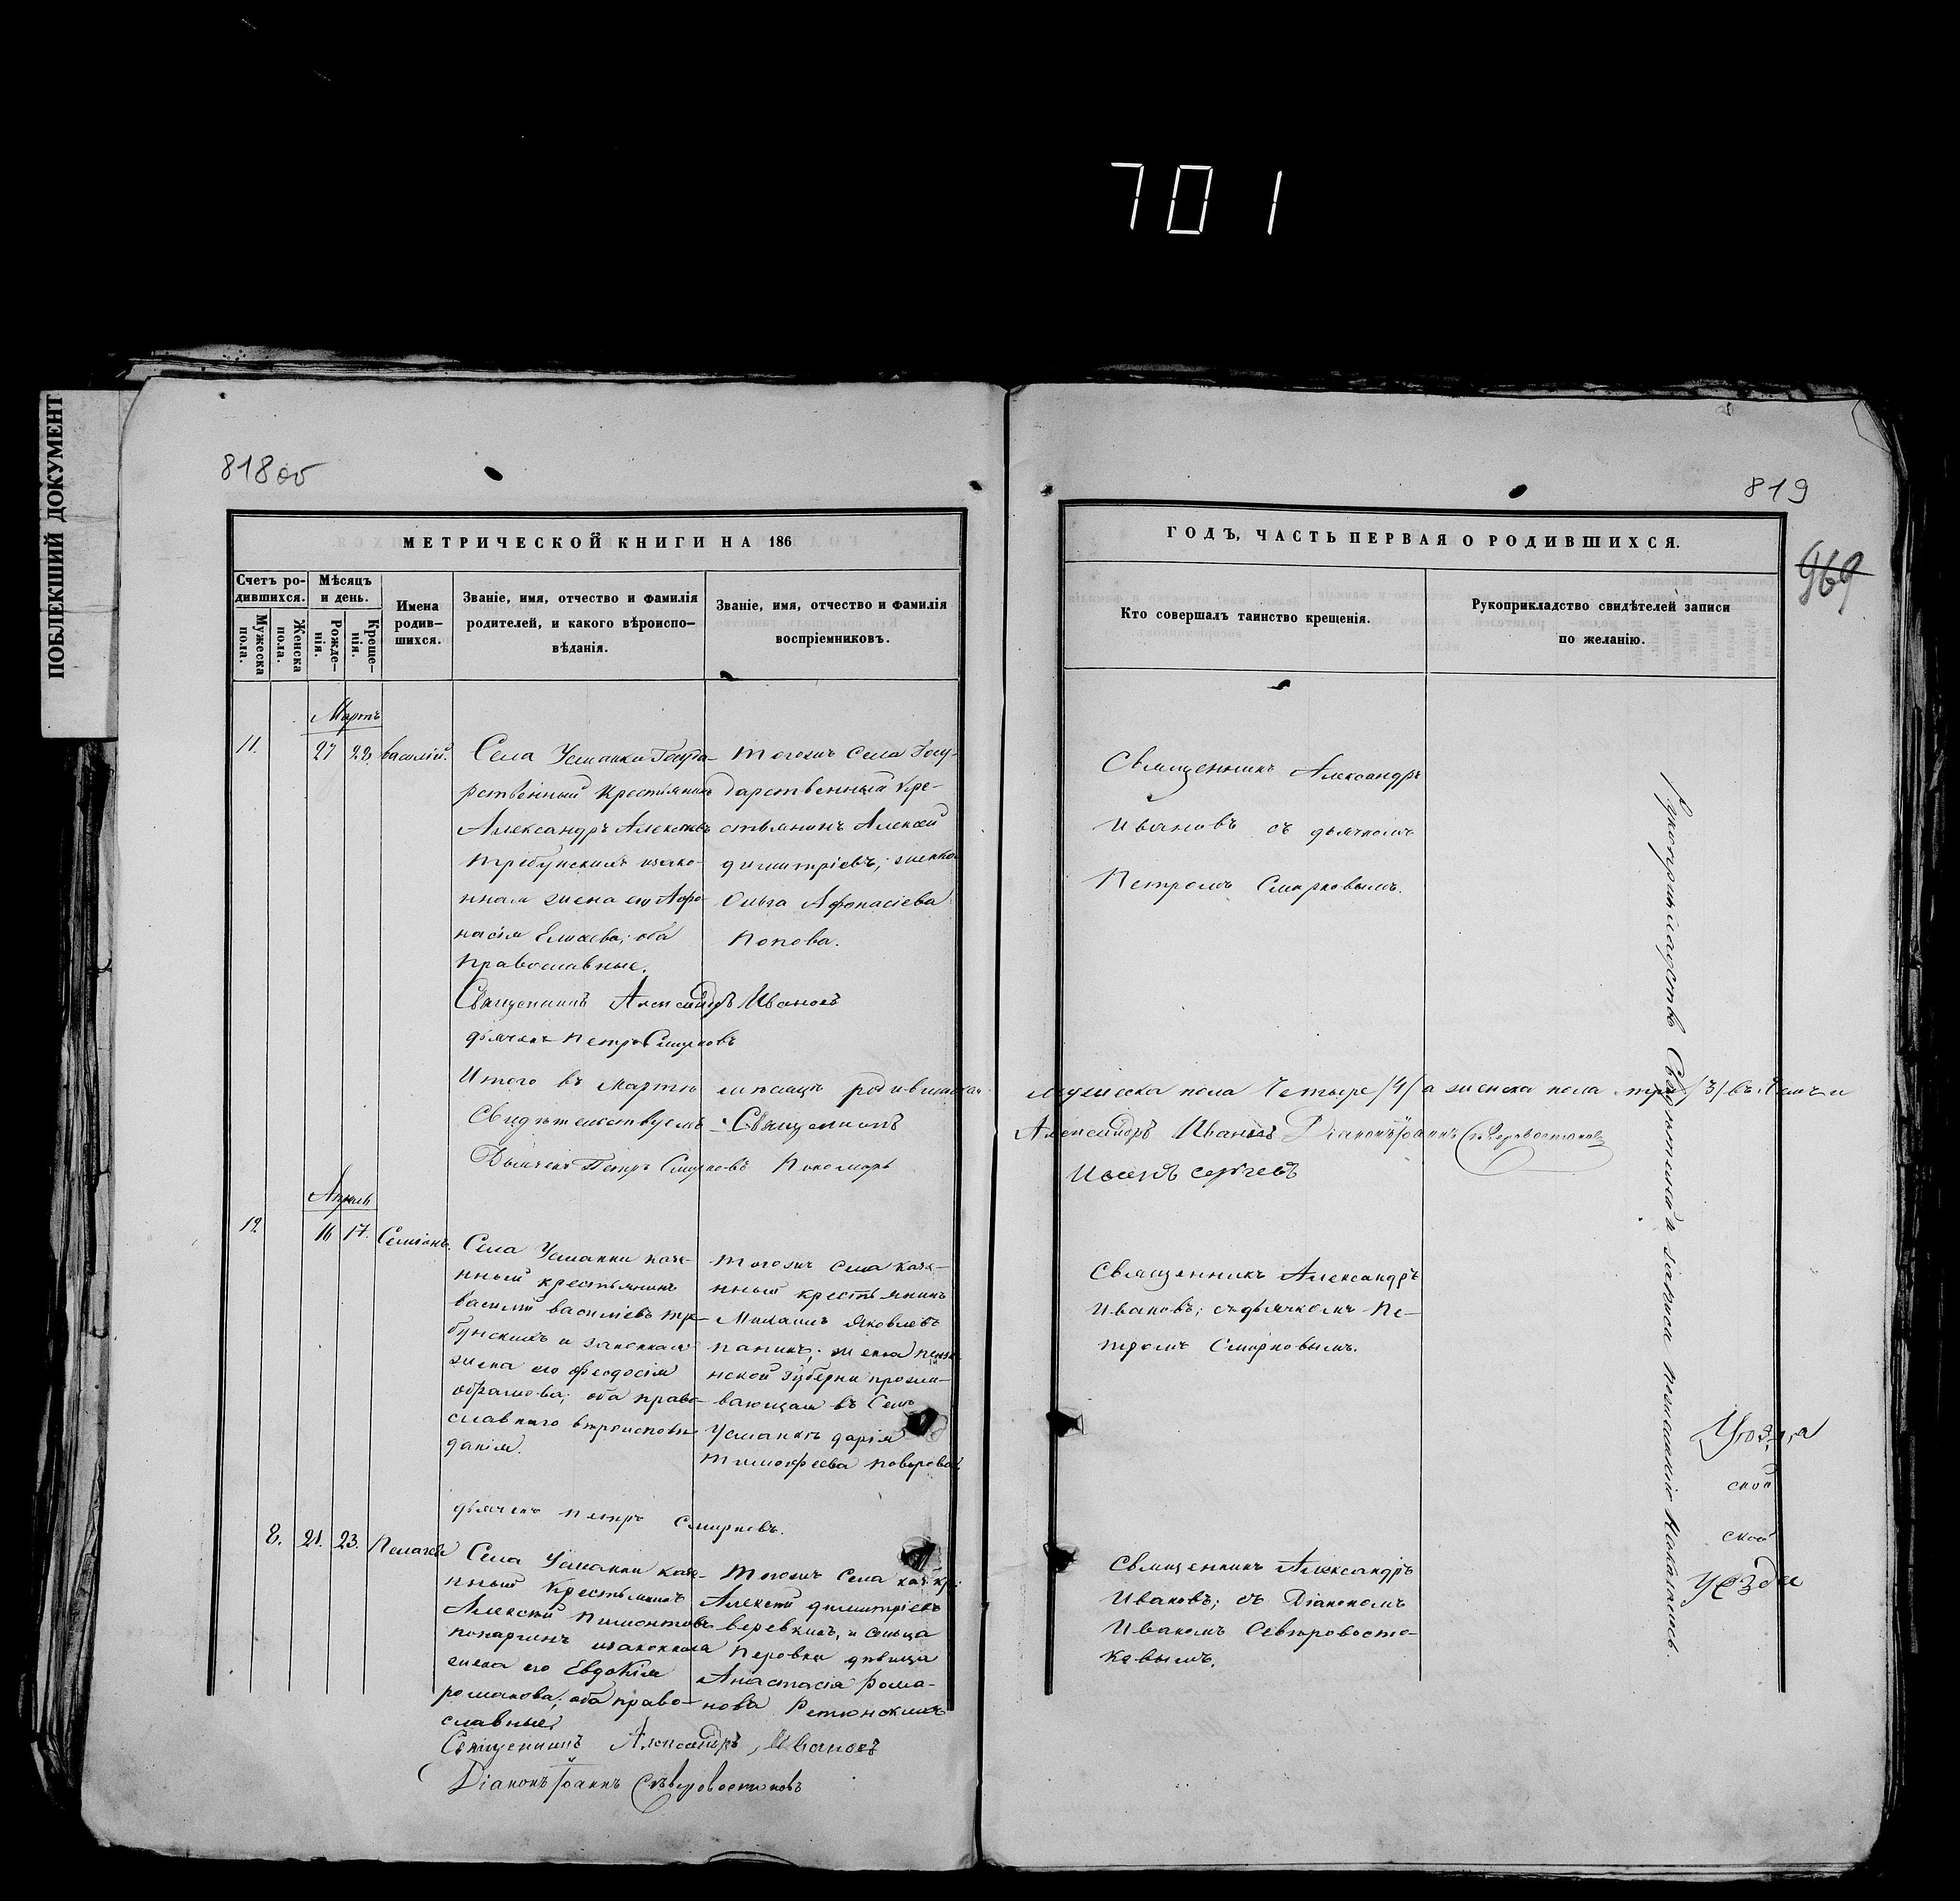 701
ПОБЛЕКШИЙ ДОКУМЕНТ
818об
МЕТРИЧЕСКОЙ КНИГИ НА 186
Счетъ ро-
дившихся.
Мужеска
пола.
Женска
пола.
Мѣсяцъ
и день.
Рожде-
нія.
Креще-
нія.
Имена
родив-
шихся.
Званіе, имя, отчество и фамилія
родителей, и какого вѣроиспо-
вѣданія.
Званіе, имя, отчество и фамилія
воспріемниковъ.
Мартъ
11. 27 28. Василій.
Села Усманки Госуда-
рственный крестьянинъ
Александръ Алексѣевъ
Требунскихъ изако-
нная жена его Афо-
насія Елисеева; оба
православные.
Тогожъ Села Госу-
дарственный кре-
стьянинъ Алексей
димитріевъ; женка
Ольга Афонасіева
Попова.
Священникъ Александръ Ивановъ
дьячекъ Петръ Смирновъ
Итого въ Мартѣ мѣсяцѣ родившихся
Свидѣтельствуемъ: Священникъ
Дьячекъ Петръ Смирновъ Пономарь
Апрель
12. 16 17. Семіонъ.
Села Усманки казе-
нный крестьянинъ
Василій василіевъ тре-
бунскихъ и законная
жена его Феодосія
Абрамова; оба право-
славнаго вѣроисповѣ-
данія.
Тогожъ Села казе-
нный крестьянинъ
Михаилъ Яковлевъ
Панинъ; жена пензе-
нской губерни прожи-
вающая въ Селѣ
Усманкѣ дарія
Тимофеева
дьячекъ Петръ Смирновъ.
8. 21. 23. Пелагея
Села Усманки казе-
нный Крестьянинъ
Алексѣй
изаконная
жена его Евдокія
романова; оба право-
славные.
Тогожъ Села каз: кр:
Алексѣй димитріевъ
веревкинъ, и Сельца
Перовки дѣвица
Анастасія Рома-
нова Ретюнскихъ
Священникъ Александръ Ивановъ
Діаконъ Іоаннъ Сѣверовостоковъ
819
969
ГОДЪ, ЧАСТЬ ПЕРВАЯ О РОДИВШИХСЯ.
Кто совершалъ таинство крещенія.
Рукоприкладство свидѣтелей записи
по желанію.
Священникъ Александръ
Ивановъ съ дьячкомъ
Петромъ Смирновымъ.
мужеска пола Четыре /4/ а женска пола три /3/ въ чемъ и
Александръ Ивановъ Діаконъ Іоаннъ Сѣверовостоковъ
Иосифъ Сергеевъ
Священникъ Александръ
Ивановъ; съ дьячкомъ Пе-
тромъ Смирновымъ.
Священникъ Александръ
Ивановъ; съ Діакономъ
Иваномъ Северовосто-
ковымъ.
Рукоприкладствъ Свидѣтелей к записи пожеланію Неоказалось.
ской
ской
уезда